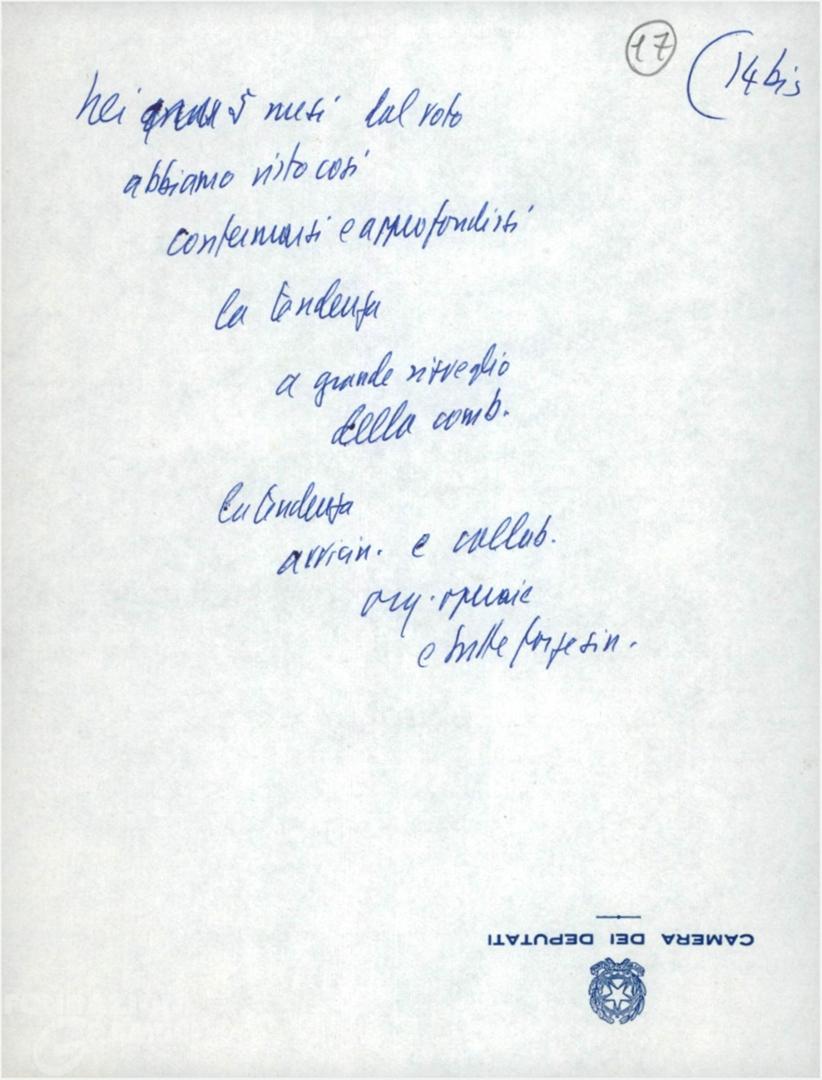 17 (14 bis
Nei 5 mesi dal voto
abbiamo visto così
confermarsi e approfondirsi
la tendenza
a grande risveglio
della comb.
la tendenza
avvicin. e collab.
org. operaie
e forze sin.
CAMERA DEI DEPUTATI